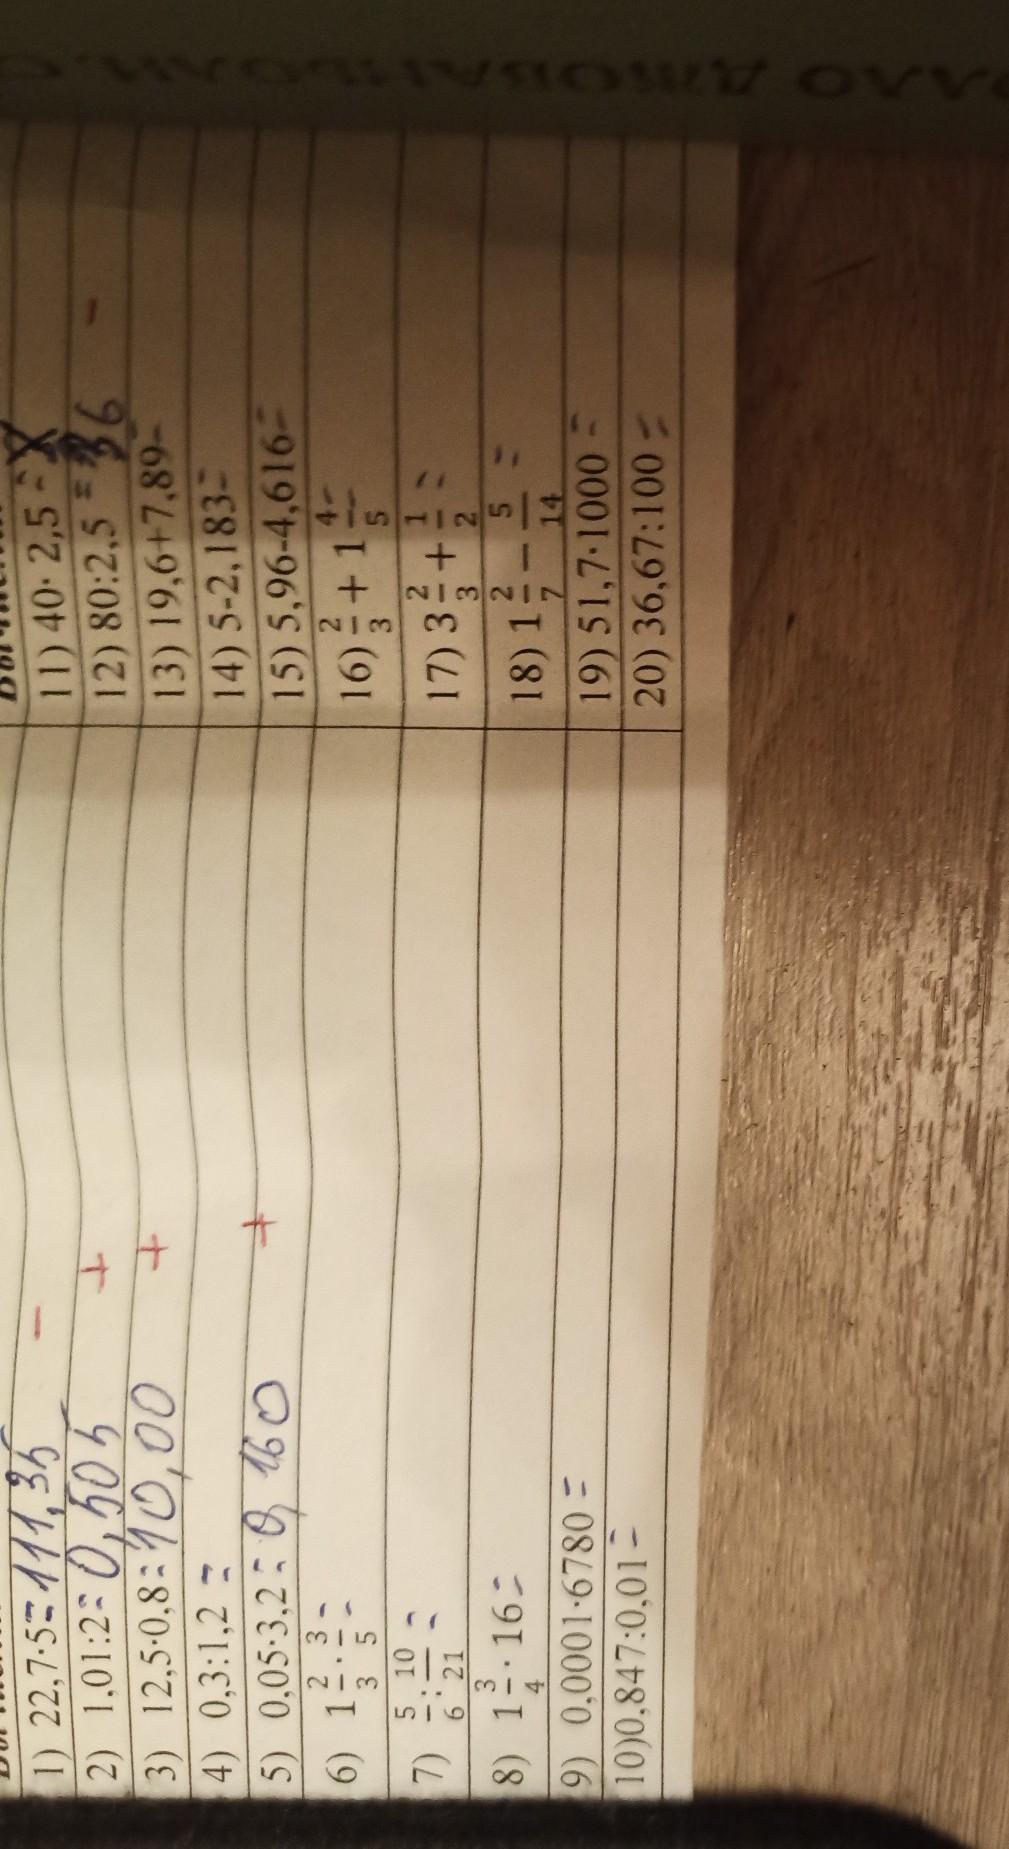 1) 22,7·5=111,35 −
2) 1,01:2=0,505 +
3) 12,5·0,8=10,00 +
4) 0,3:1,2=
5) 0,05·3,2=0,160 +
6) 1 2/3 · 3/5=
7) 5/6 : 10/21=
8) 1 3/4 · 16=
9) 0,0001·6780=
10)0,847:0,01=
11) 40·2,5=
12) 80:2,5=36 −
13) 19,6+7,89=
14) 5-2,183=
15) 5,96-4,616=
16) 2/3 + 1 4/5=
17) 3 2/3 + 1/2=
18) 1 2/7 − 5/14=
19) 51,7·1000=
20) 36,67:100=